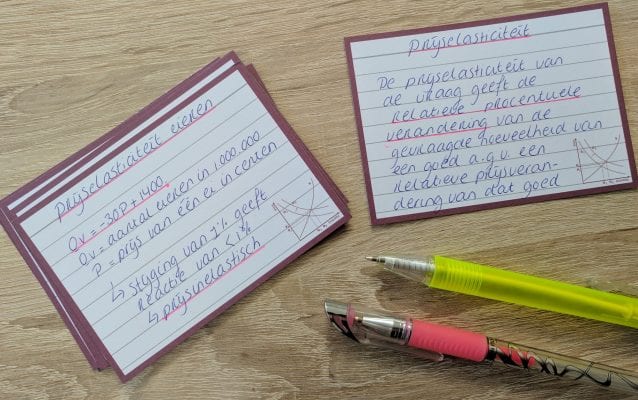 Prijselasticiteit eieren
Qv = -30P + 1400
Qv = aantal eieren in 1.000.000
P = prijs van één ei in centen
↳ stijging van 1% geeft
reactie van < 1%
↳ prijsinelastisch
Prijselasticiteit
De prijselasticiteit van
de vraag geeft de
relatieve procentuele
verandering van de
gevraagde hoeveelheid van
een goed a.g.v. een
relatieve prijsveran-
dering van dat goed